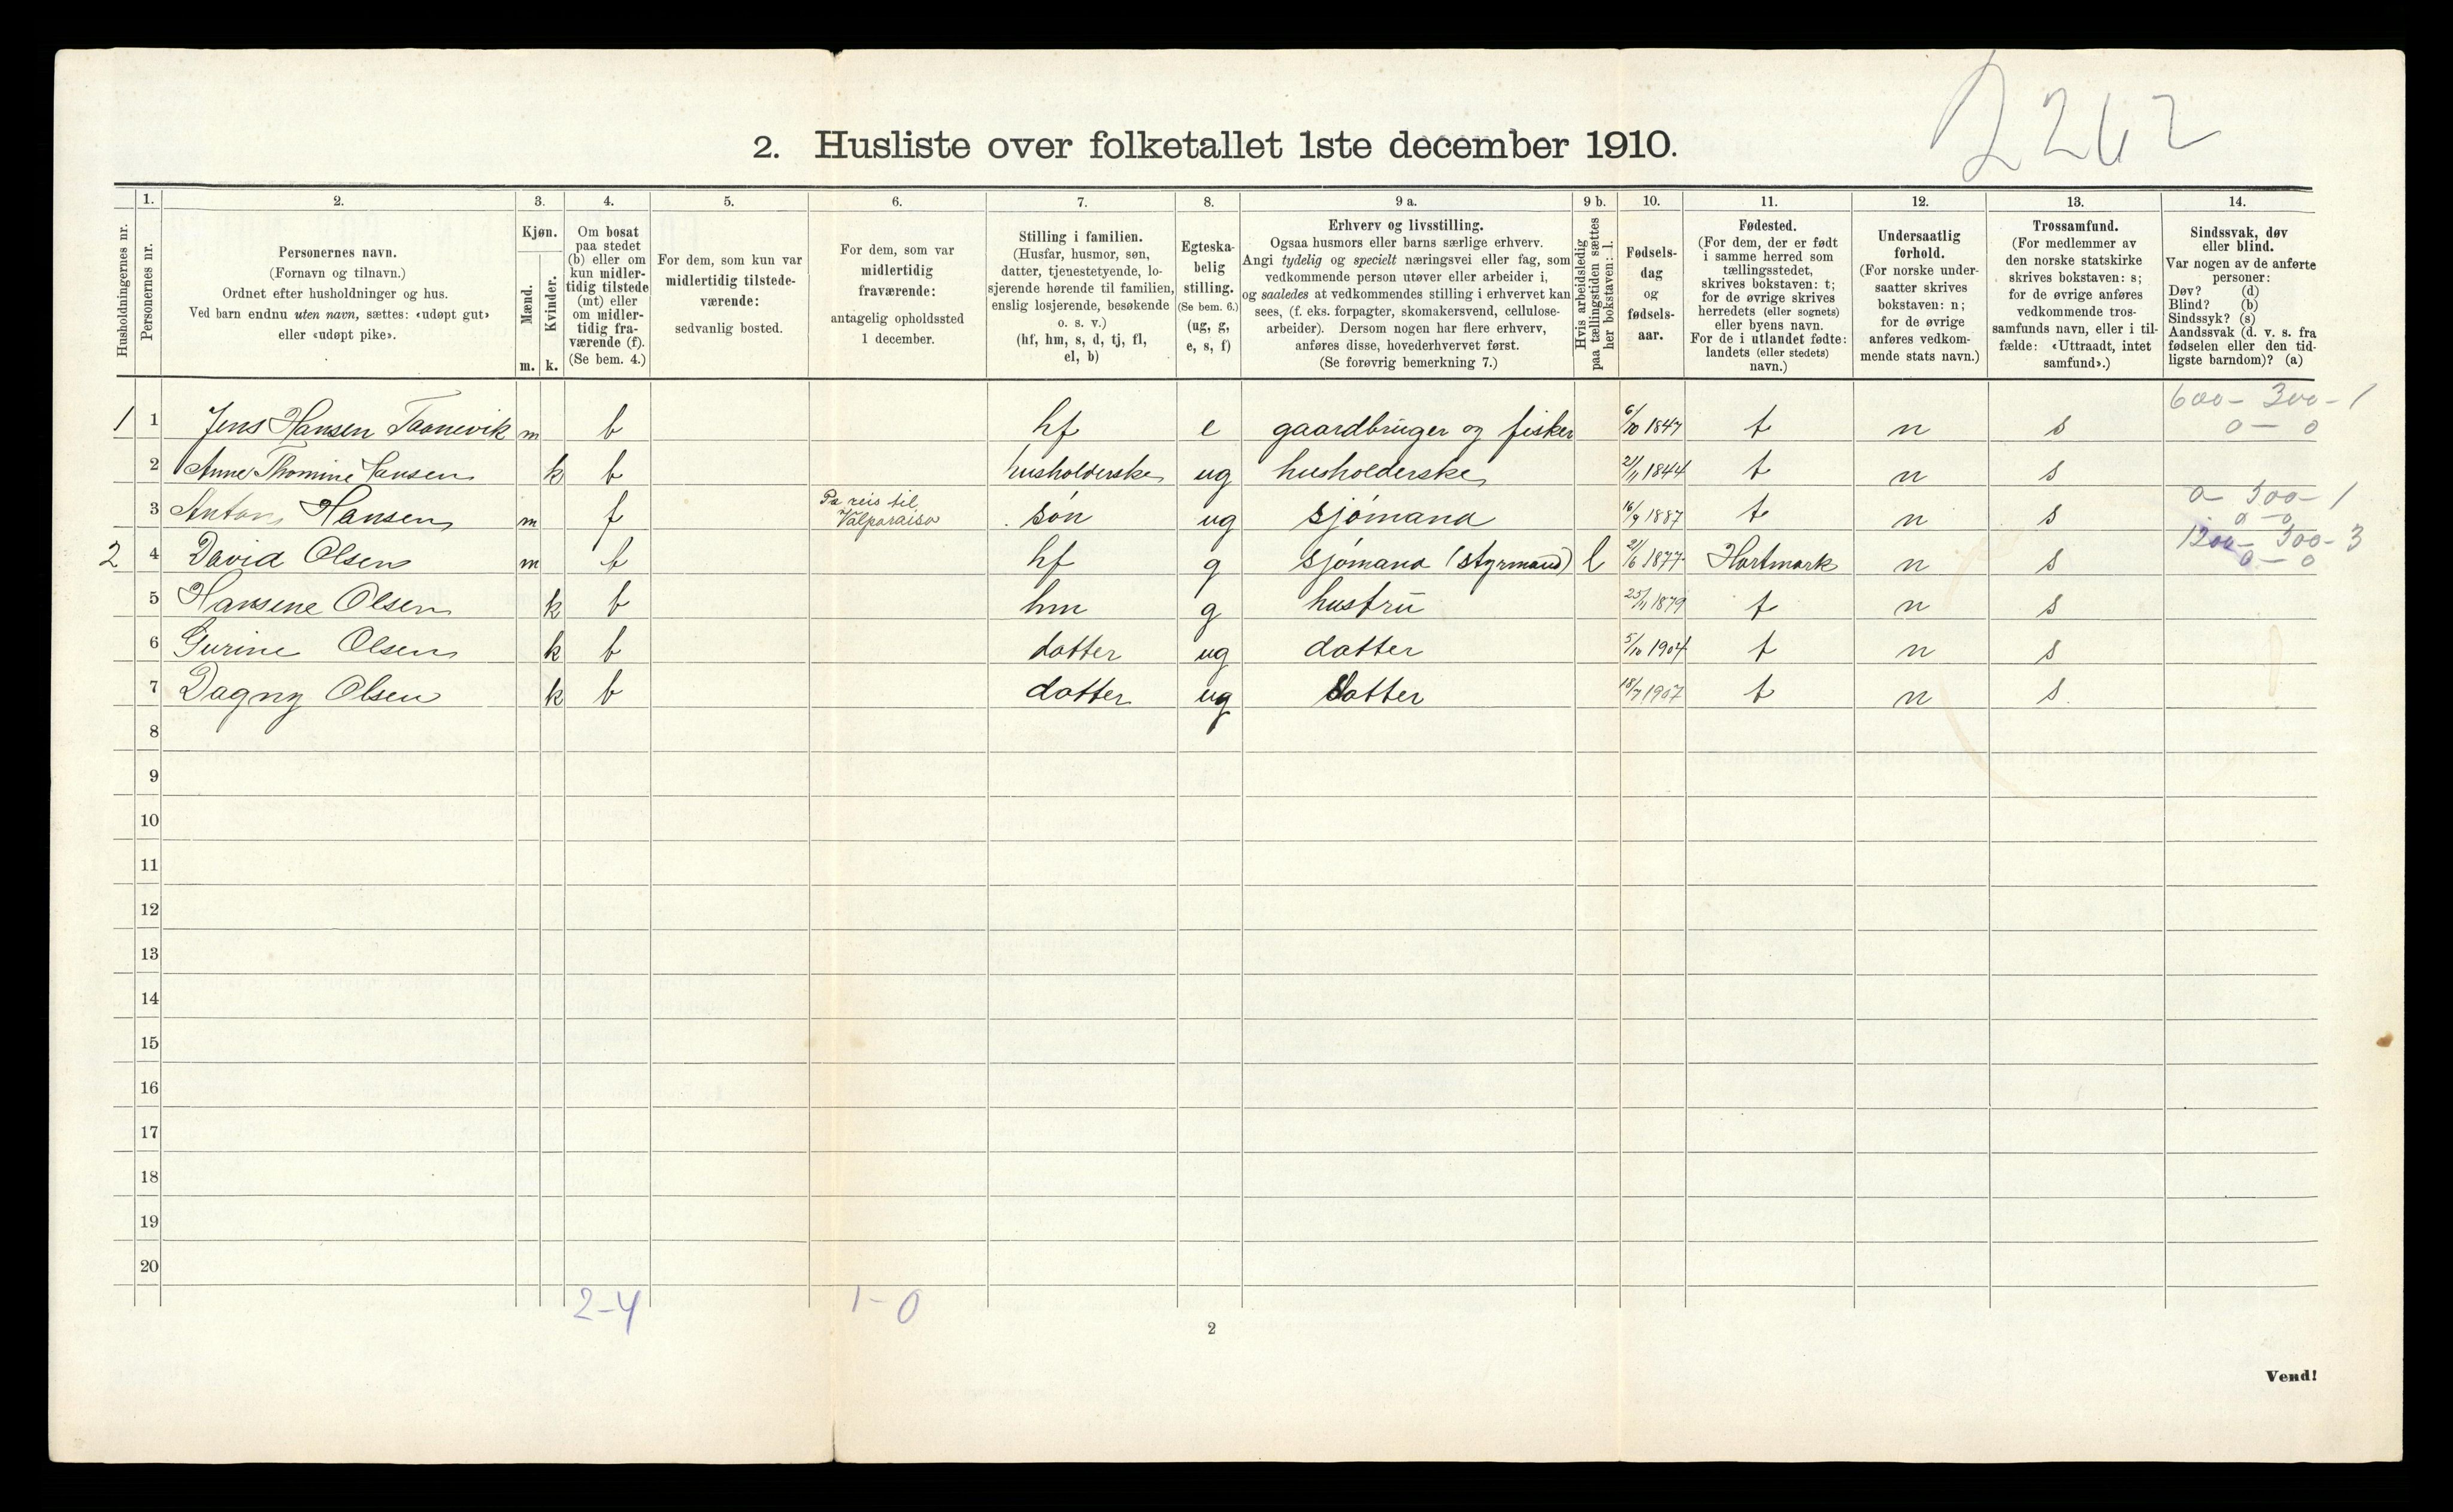 2262
2. Husliste over folketallet 1ste december 1910.
1. 2. 3. 4. 5. 6. 7. 8. 9 a. 9 b. 10. 11. 12. 13. 14.
Husholdningernes nr.
Personernes nr.
Personernes navn.
(Fornavn og tilnavn.)
Ordnet efter husholdninger og hus.
Ved barn endnu uten navn, sættes: «udøpt gut»
eller «udøpt pike».
Kjøn.
Mænd.
Kvinder.
m. k.
Om bosat
paa stedet
(b) eller om
kun midler-
tidig tilstede
(mt) eller
om midler-
tidig fra-
værende (f).
(Se bem. 4.)
For dem, som kun var
midlertidig tilstede-
værende:
sedvanlig bosted.
For dem, som var
midlertidig
fraværende:
antagelig opholdssted
1 december.
Stilling i familien.
(Husfar, husmor, søn,
datter, tjenestetyende, lo-
sjerende hørende til familien,
enslig losjerende, besøkende
o. s. v.)
(hf, hm, s, d, tj, fl,
el, b)
Egteska-
belig
stilling.
(Se bem. 6.)
(ug, g,
e, s, f)
Erhverv og livsstilling.
Ogsaa husmors eller barns særlige erhverv.
Angi tydelig og specielt næringsvei eller fag, som
vedkommende person utøver eller arbeider i,
og saaledes at vedkommendes stilling i erhvervet kan
sees, (f. eks. forpagter, skomakersvend, cellulose-
arbeider). Dersom nogen har flere erhverv,
anføres disse, hovederhvervet først.
(Se forøvrig bemerkning 7.)
Hvis arbeidsledig
paa tællingstiden sættes
her bokstaven: l.
Fødsels-
dag
og
fødsels-
aar.
Fødested.
(For dem, der er født
i samme herred som
tællingsstedet,
skrives bokstaven: t;
for de øvrige skrives
herredets (eller sognets)
eller byens navn.
For de i utlandet fødte:
landets (eller stedets)
navn.)
Undersaatlig
forhold.
(For norske under-
saatter skrives
bokstaven: n;
for de øvrige
anføres vedkom-
mende stats navn.)
Trossamfund.
(For medlemmer av
den norske statskirke
skrives bokstaven: s;
for de øvrige anføres
vedkommende tros-
samfunds navn, eller i til-
fælde: «Uttraadt, intet
samfund».)
Sindssvak, døv
eller blind.
Var nogen av de anførte
personer:
Døv? (d)
Blind? (b)
Sindssyk? (s)
Aandssvak (d. v. s. fra
fødselen eller den tid-
ligste barndom)? (a)
600 - 300 - 1
1 1 Jens Hansen Taanevik m b hf e gaardbruger og fisker 6/10 1847 t n s 0 - 0
2 Anne Thomine Hansen k b husholderske ug husholderske 21/11 1844 t n s
Pa reis til 0 - 300 - 1
3 Anton Hansen m f Valparaiso søn ug sjømand 16/9 1887 t n s 0 - 0
1200 - 300 - 3
2 4 David Olsen m b hf g sjømand (styrmand) l 21/6 1877 Hartmark n s 0 - 0
5 Hansine Olsen k b hm g hustru 25/11 1879 t n s
6 Gurine Olsen k b datter ug datter 5/10 1904 t n s
7 Dagny Olsen k b datter ug datter 18/7 1907 t n s
8
9
10
11
12
13
14
15
16
17
18
19
20
2-4 1-0
2
Vend!